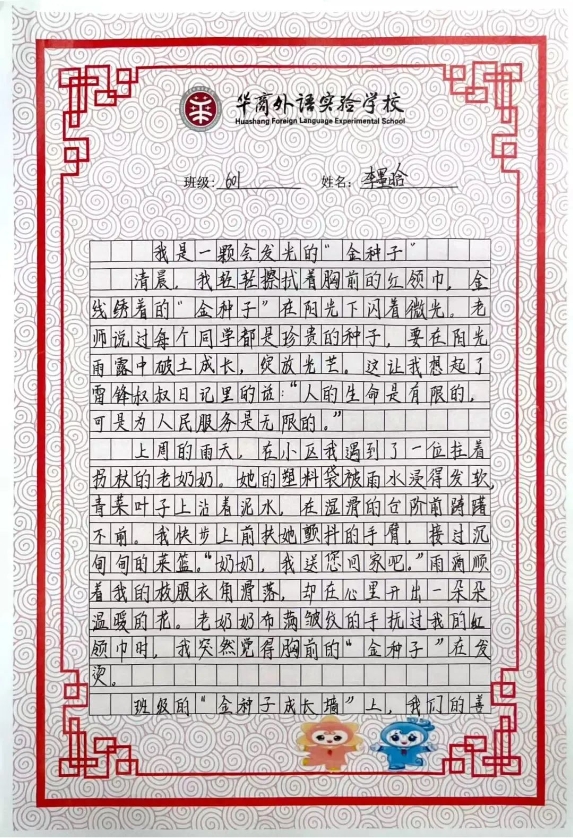 华商外语实验学校
Huashang Foreign Language Experimental School
班级: 601 姓名: 李墨晗
我是一颗会发光的“金种子”
清晨,我轻轻擦拭着胸前的红领巾,金
线绣着的“金种子”在阳光下闪着微光。老
师说过每个同学都是珍贵的种子,要在阳光
雨露中破土成长,绽放光芒。这让我想起了
雷锋叔叔日记里的话:“人的生命是有限的,
可是为人民服务是无限的。”
上周的雨天,在小区我遇到了一位拄着
拐杖的老奶奶。她的塑料袋被雨水浸得发软,
青菜叶子上沾着泥水,在湿滑的台阶前踌躇
不前。我快步上前扶她颤抖的手臂,接过沉
甸甸的菜篮。“奶奶,我送您回家吧。”雨滴顺
着我的校服衣角滑落,却在心里开出一朵朵
温暖的花。老奶奶布满皱纹的手抚过我的红
领巾时,我突然觉得胸前的“金种子”在发
烫。
班级的“金种子成长墙”上,我们的善